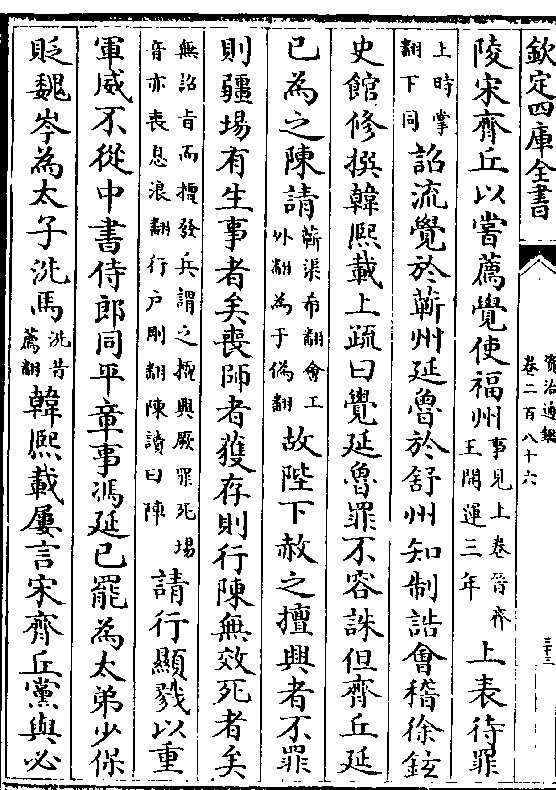 欽定四庫全書
資治通鑑
卷二百八十六
三十三
陵宋齊丘以嘗薦覺使福州事見上卷晉齊王開運三年上表待罪
上時掌翻下同詔流覺於蘄州延魯於舒州知制誥會稽徐鉉
史館修撰韓熙載上疏曰覺延魯罪不容誅但齊丘延
已為之陳請蘄渠希翻會工外翻為于偽翻故陛下赦之擅興者不罪
則疆埸有生事者矣喪師者獲存則行陳無效死者矣
無詔旨而擅發兵謂之擅興厥罪死埸音亦喪息浪翻行户剛翻陳讀曰陣請行顯戮以重
軍威不從中書侍郎同平章事馮延已罷為太弟少保
貶魏岑為太子洗馬洗昔薦翻韓熙載屢言宋齊丘黨與必